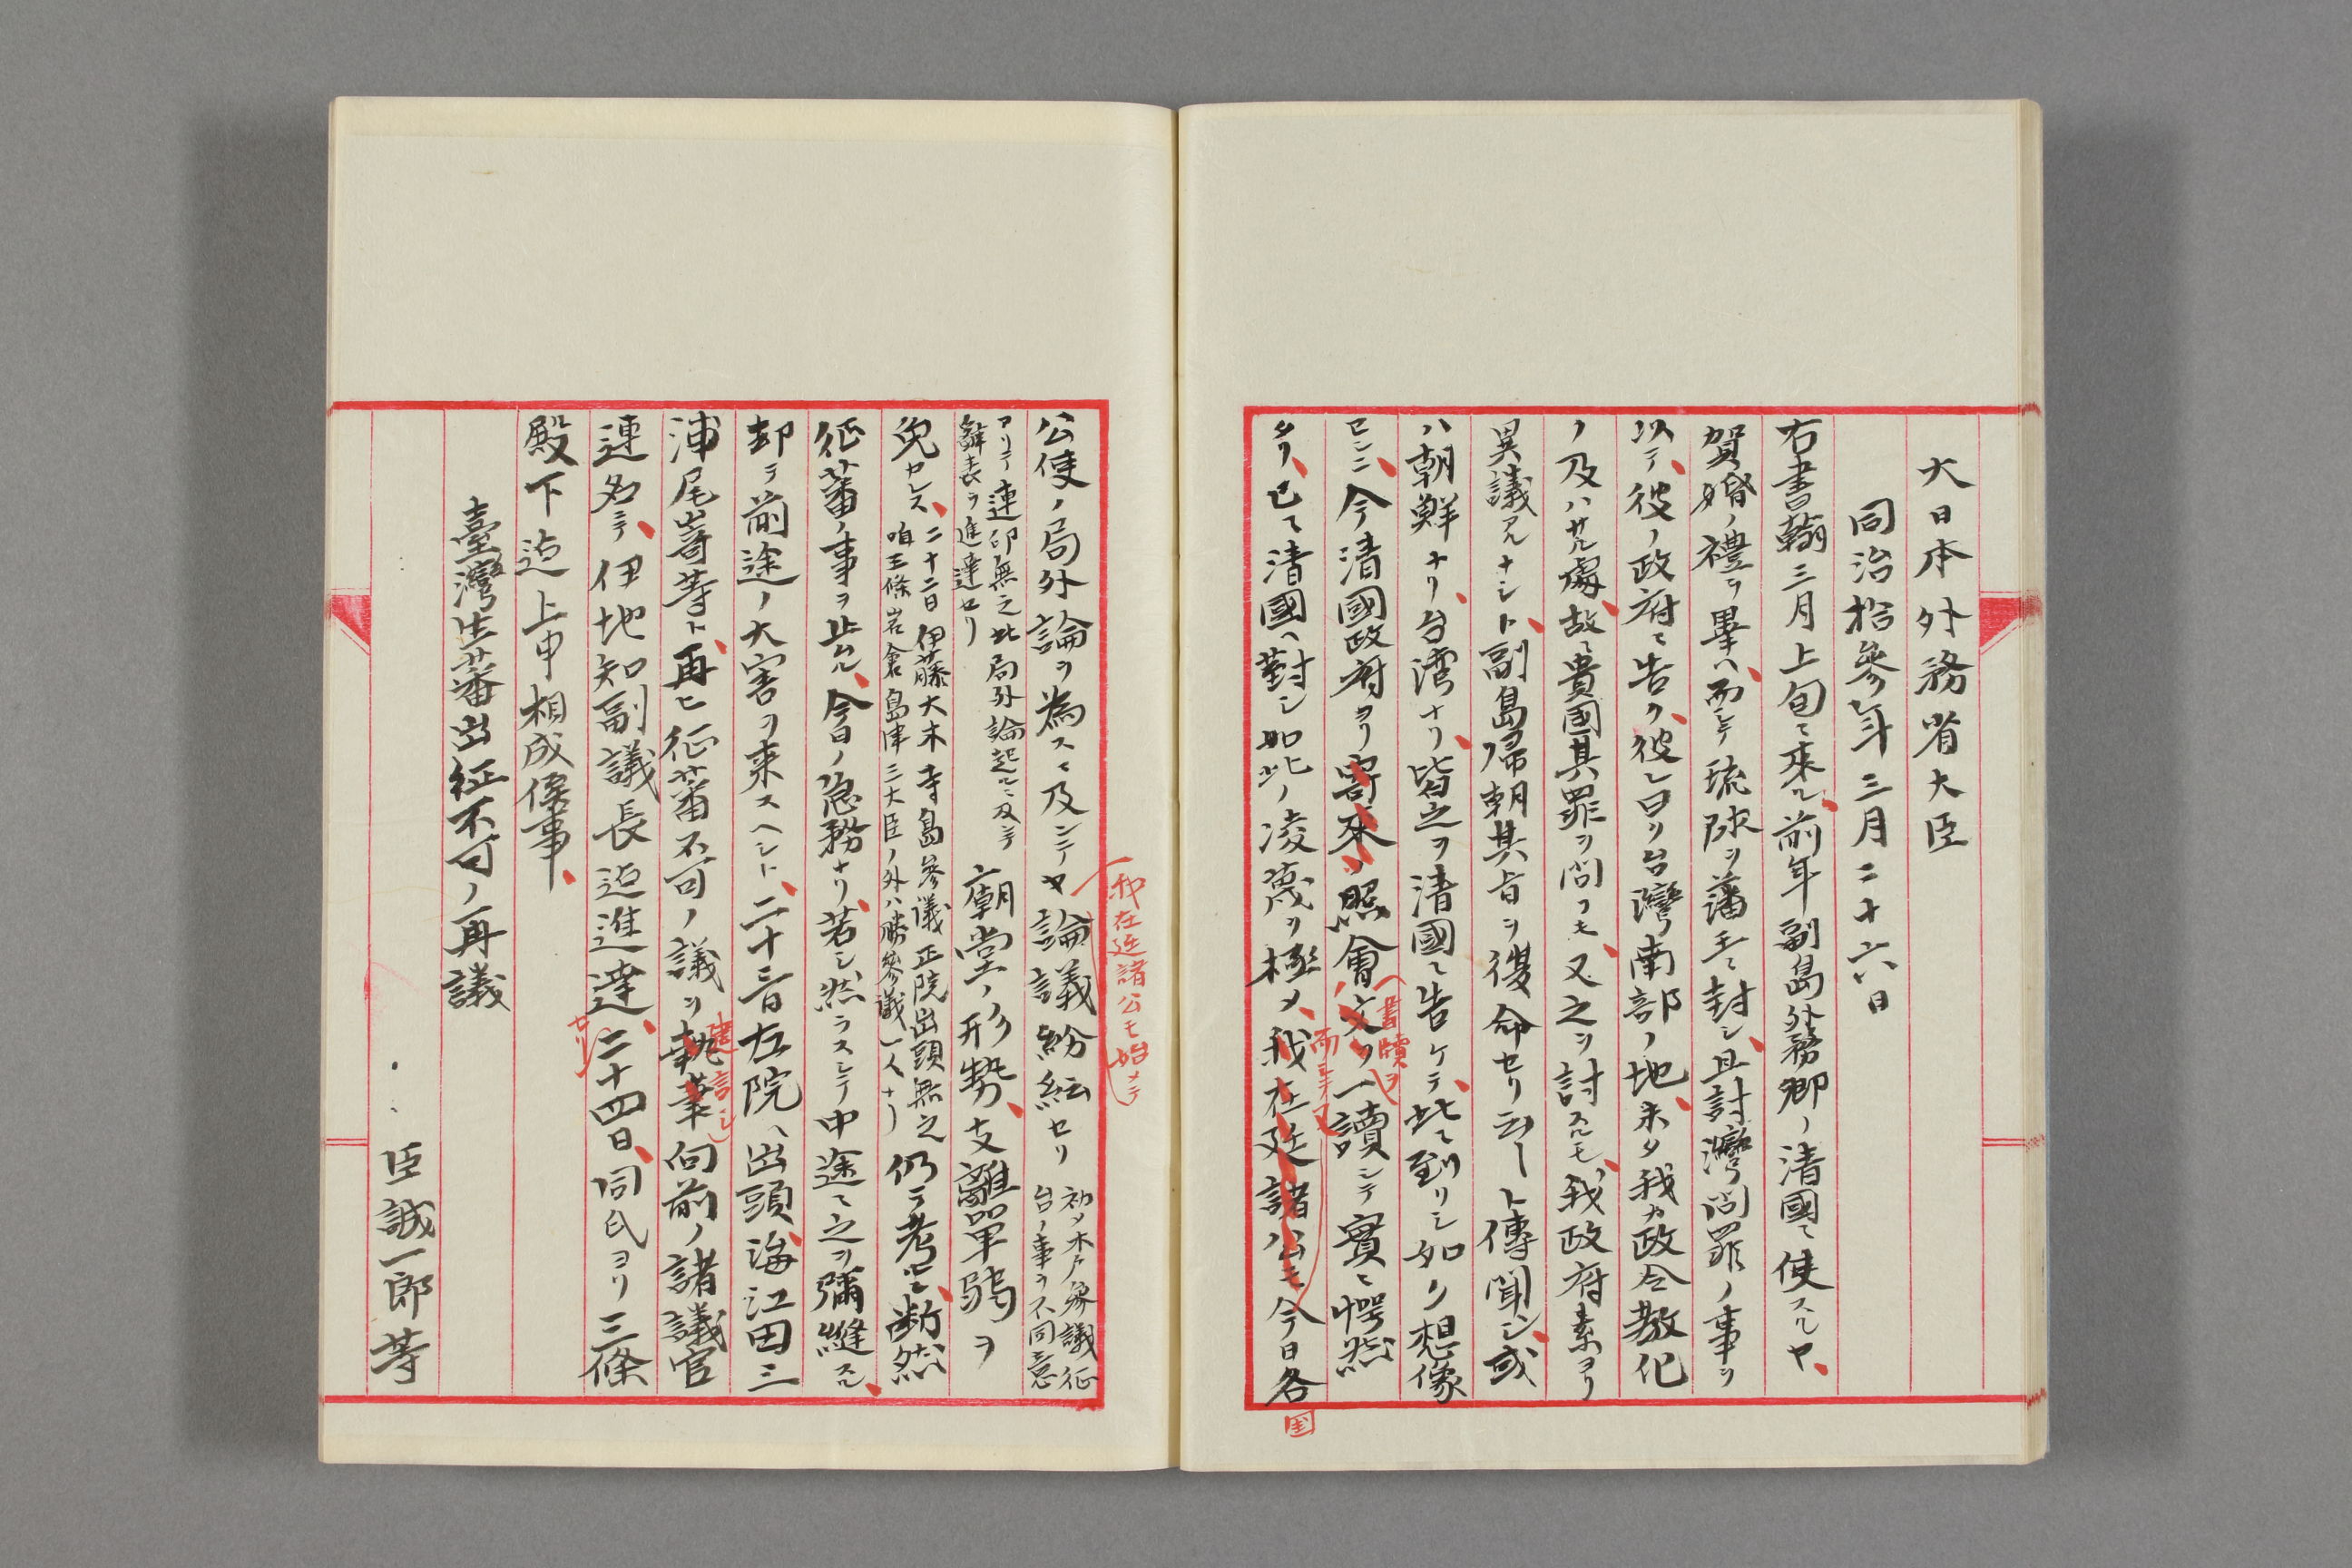 大日本外務省大臣
同治拾參年三月二十六日
右書翰三月上旬ニ來ル、前年副島外務卿ノ清國ニ使スルヤ、
賀婚ノ禮ヲ畢ハ、而シテ琉球ヲ藩王ニ封シ、且討灣問罪ノ事ヲ
以テ、彼ノ政府ニ告ク、彼レ曰リ台灣南部ノ地、未タ我カ政令教化
ノ及ハサル處、故ニ貴國其罪ヲ問フモ、又之ヲ討スルモ、我政府素ヨリ
異議アルナシト、副島歸朝其旨ヲ復命セリ云々ト傳聞シ、或
ハ朝鮮ナリ、台湾ナリ、皆之ヲ清國ニ告ケテ、此ニ到リシ如ク想像
セシニ、今清國政府ヨリ寄來ノ照會文ヲ一讀シテ實ニ愕然
書牘ヲ
タリ、已ニ清國ヘ對シ如此ノ凌蔑ヲ極メ、我在廷諸公モ今日各
而シテ又
国
公使ノ局外論ヲ為スニ及ンテヤ論議紛紜セリ初メ木戸參議征
台ノ事ヲ不同意
我在廷諸公モ始メテ
アリテ連印無之此局外論起ルニ及テ
辭表ヲ進達セリ廟堂ノ形勢、支離單弱ヲ
免カレス、二十二日伊藤大木寺島參議正院出頭無之
咱三條岩倉島津三大臣ノ外ハ勝參議一人ナリ仍テ考ルニ、断然
征蕃ノ事ヲ止ムル、今日ノ急務ナリ、若シ然ラスシテ中途ニ之ヲ彌縫スル、
却テ前途ノ大害ヲ来スヘシト、二十三日左院ヘ出頭、海江田三
浦尾嵜等ト、再ヒ征蕃不可ノ議ヲ執筆向前ノ諸議官
建言シ
連名ニテ、伊地知副議長迄進達、二十四日、同氏ヨリ三條
セリ
殿下迄上申相成候事、
臺灣生蕃出征不可ノ再議
臣誠一郎等